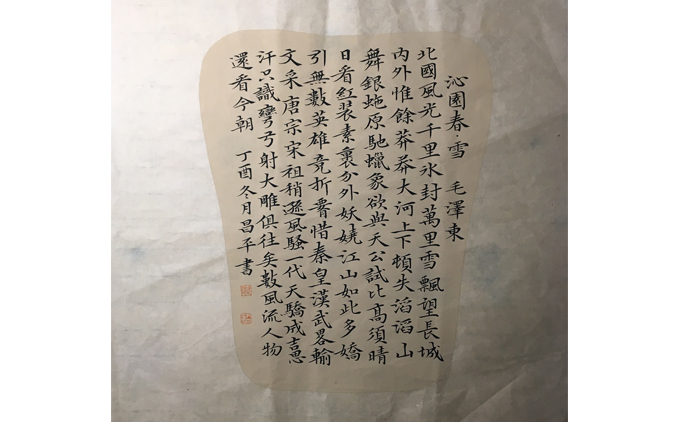 沁園春·雪 毛澤東
北國風光千里冰封萬里雪飄望長城
內外惟餘莽莽大河上下頓失滔滔山
舞銀蛇原馳蠟象欲與天公試比高須晴
日看紅裝素裹分外妖嬈江山如此多嬌
引無數英雄竞折腰惜秦皇漢武畧輸
文采唐宗宋祖稍遜風騷一代天驕成吉思
汗只識彎弓射大雕俱往矣數風流人物
還看今朝 丁酉冬月昌平書